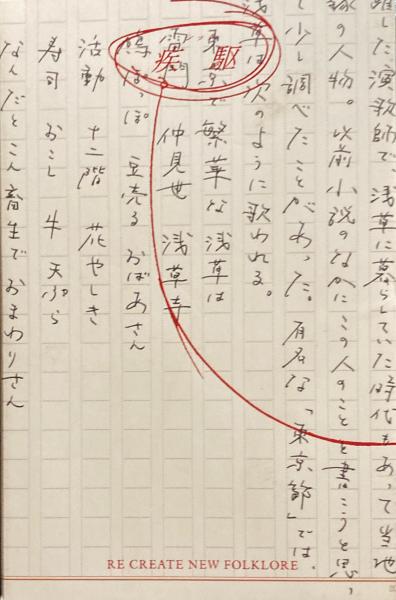 した演歌師で、浅草に暮らしていた時代もあって当地
縁の人物。以前小説のなかにこの人のことを書こうと思い、
少し調べたことがあった。有名な「東京節」では、
浅草は次のように歌われる。
東京で繁華な浅草は
雷門 仲見世 浅草寺
鳩ぽっぽ 豆売るおばあさん
活動 十二階 花やしき
寿司 おこし 牛 天ぷら
なんだとこん畜生でおまわりさん
疾駆
RE CREATE NEW FOLKLORE